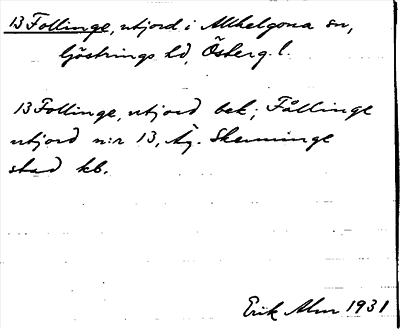 13 Follinge, utjord i Allhelgona sn,
Göstrings hd, Österg. l.
13 Follinge, utjord bek; Fållinge
utjord n:r 13, äg. Skenninge
stad kb.
Erik Alm 1931